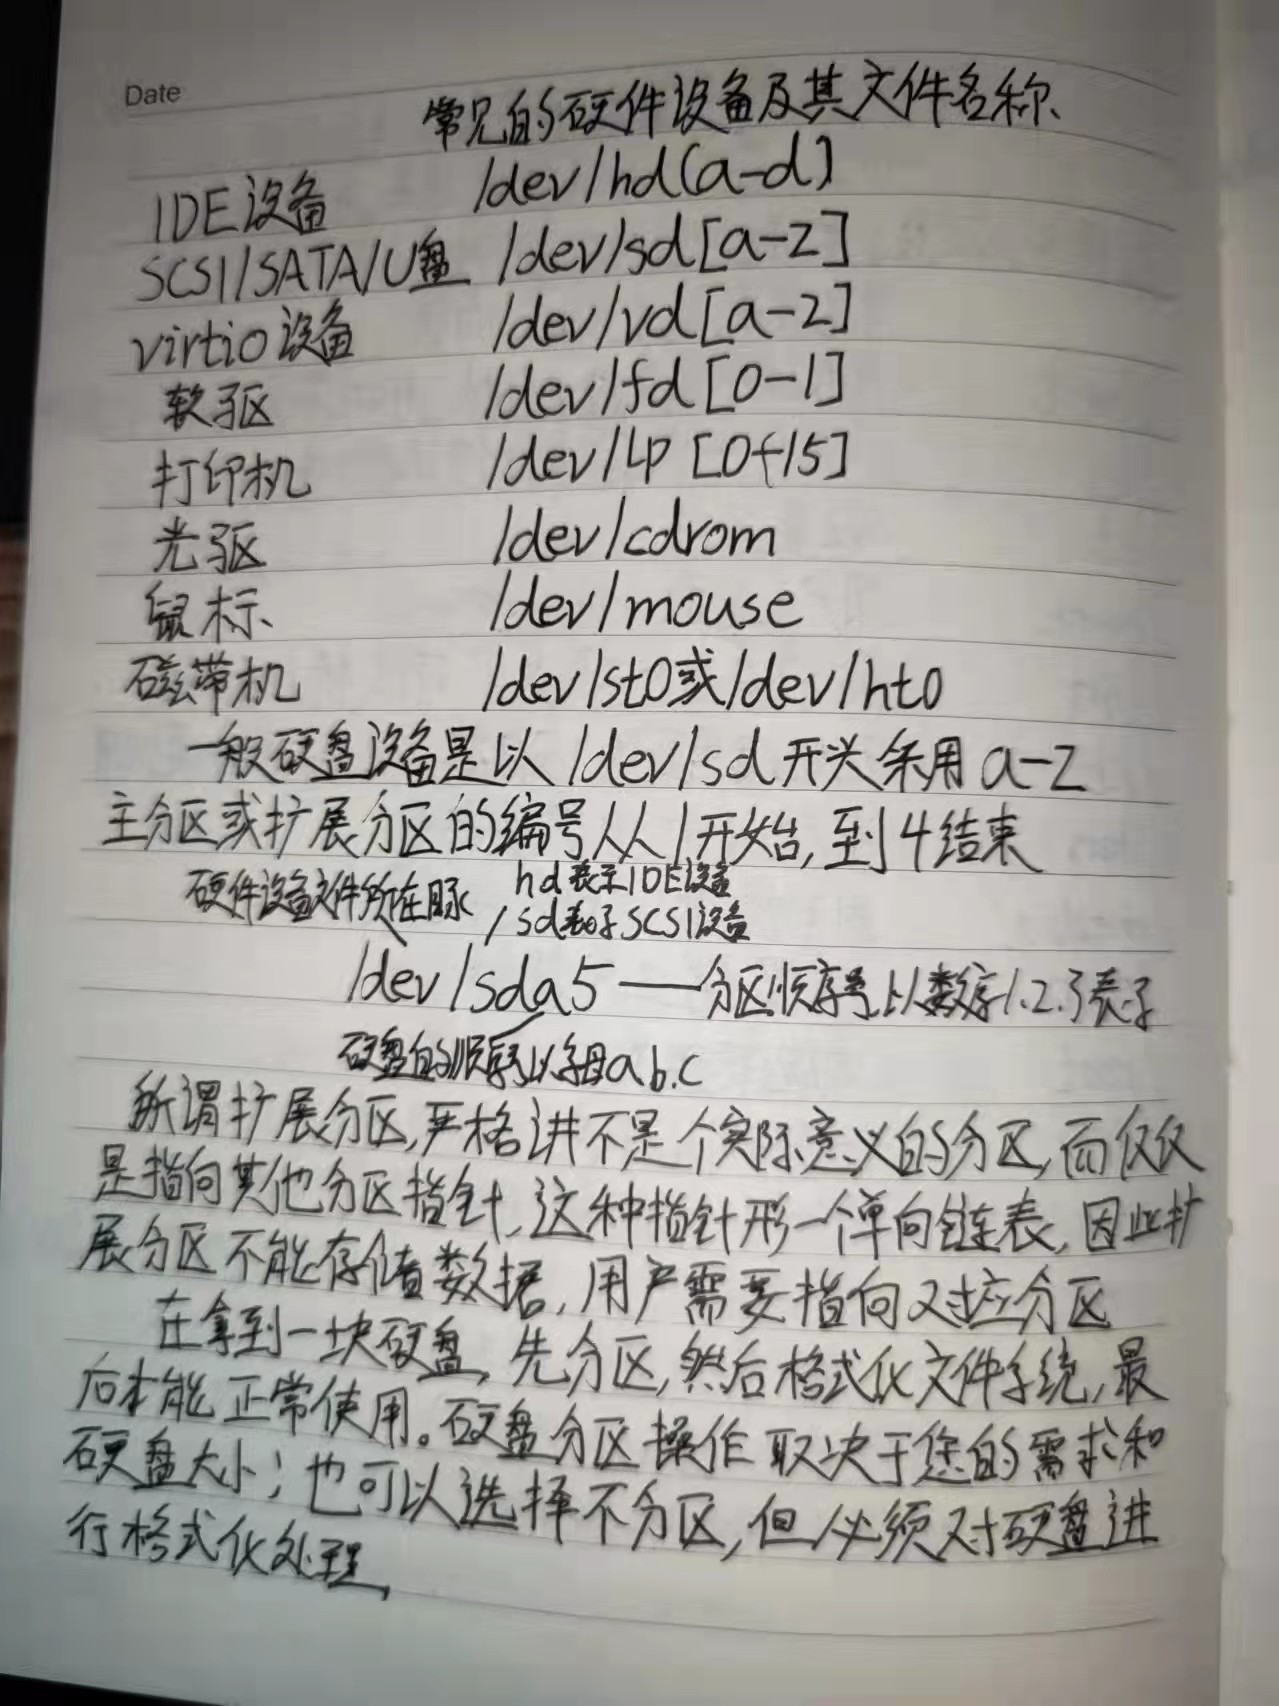 Date
常见的硬件设备及其文件名称
IDE设备 /dev/hd(a-d]
SCSI/SATA/U盘 /dev/sd[a-z]
virtio设备 /dev/vd[a-z]
软驱 /dev/fd[0-1]
打印机 /dev/lp[0-15]
光驱 /dev/cdrom
鼠标 /dev/mouse
磁带机 /dev/st0或/dev/ht0
一般硬盘设备是以/dev/sd开头采用a-z
主分区或扩展分区的编号从1开始,到4结束
硬件设备文件所在 hd表示IDE设备
sd表示SCSI设备
/dev/sda5——分区顺序号,以数字1.2.3表示
硬盘的顺序号,以字母a.b.c
所谓扩展分区,严格讲不是个实际意义的分区,而仅仅
是指向其他分区指针,这种指针形一个单向链表,因此扩
展分区不能存储数据,用户需要指向对应分区
在拿到一块硬盘,先分区,然后格式化文件系统,最
后才能正常使用。硬盘分区操作取决于您的需求和
硬盘大小;也可以选择不分区,但必须对硬盘进
行格式化处理,